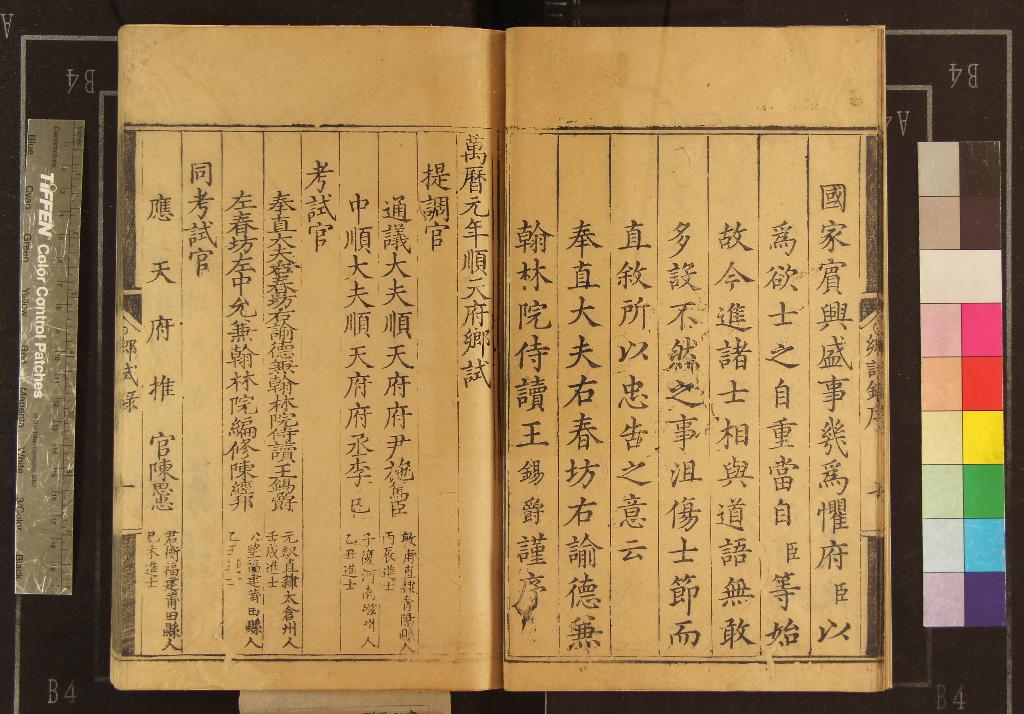 國家賓興盛事幾爲懼府臣以
爲欲士之自重當自臣等始
故今進諸士相與道語無敢
多設不然之事沮傷士節而
直敘所以忠告之意云
奉直大夫右春坊右諭德兼
翰林院侍讀王錫爵謹序
鄉試錄序
萬曆元年順天府鄉試
提調官
通議大夫順天府府尹施篤臣
敦甫直隸青陽縣人
丙辰進士
中順大夫順天府府丞李已
子復河南磁州人
乙丑進士
考試官
奉直大夫右春坊右諭德兼翰林院侍讀王錫爵
元馭直隸太倉州人
壬戌進士
左春坊左中允兼翰林院編修陳經邦
公望福建莆田縣人
乙丑進士
同考試官
應天府推官陳思忠
君衛福建莆田縣人
已未進士
鄉試錄
一
TIFFEN Color Control Patches
Centimetres
Blue
Cyan
Green
Yellow
Red
Magenta
White
3/Color
Black
B4
B4
B4
B4
A4
A